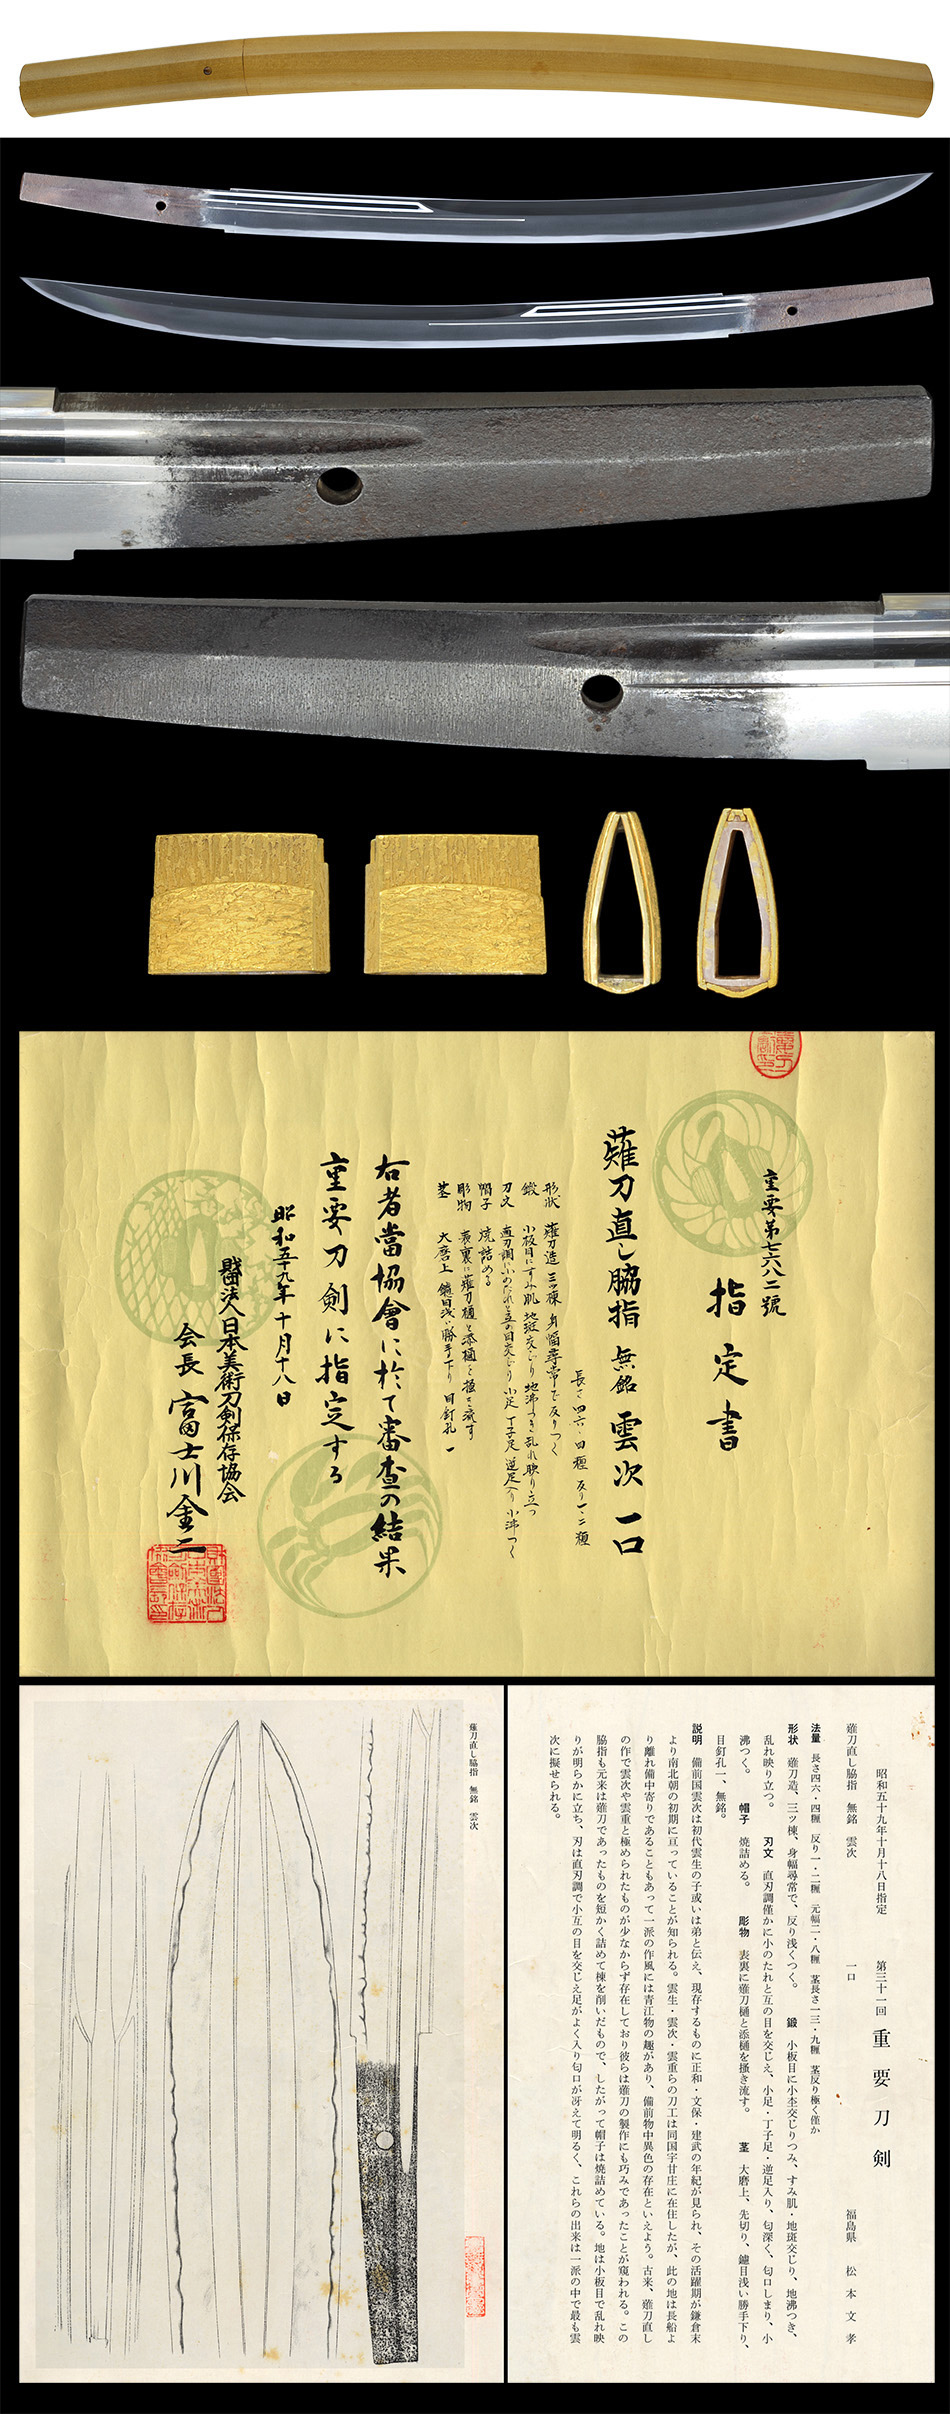 重要第七六八二號
指定書
薙刀直し脇指 無銘 雲次 一口
長さ四六・四糎 反り一・二糎
形状 薙刀造 三ッ棟 身幅尋常で反りつく
鍛 小板目にすみ肌 地斑交じり 地沸つき 乱れ映り立つ
刃文 直刃調に小のたれと互の目交じり 小足 丁子足 逆足入り 小沸つく
帽子 焼詰める
彫物 表裏に薙刀樋と添樋を掻き流す
茎 大磨上 鑢目浅い勝手下り 目釘孔一
右者當協會に於て審査の結果
重要刀剣に指定する
昭和五十九年十月十八日
財団法人日本美術刀剣保存協会
会長
薙刀直し脇指 無銘 雲次
昭和五十九年十月十八日指定 第三十一回 重要刀剣
薙刀直し脇指 無銘 雲次 一口 福島県 松本文孝
法量 長さ四六・四糎 反り一・二糎 元幅二・八糎 茎長さ一三・九糎 茎反り極く僅か
形状 薙刀造、三ッ棟、身幅尋常で、反り浅くつく。 鍛 小板目に小杢交じりつみ、すみ肌・地斑交じり、地沸つき、
乱れ映り立つ。 刃文 直刃調僅かに小のたれと互の目を交じえ、小足・丁子足・逆足入り、匂深く、匂口しまり、小
沸つく。 帽子 焼詰める。 彫物 表裏に薙刀樋と添樋を掻き流す。 茎 大磨上、先切り、鑢目浅い勝手下り、
目釘孔一、無銘。
説明 備前国雲次は初代雲生の子或いは弟と伝え、現存するものに正和・文保・建武の年紀が見られ、その活躍期が鎌倉末
より南北朝の初期に亘っていることが知られる。雲生・雲次・雲重らの刀工は同国宇甘庄に在住したが、此の地は長船よ
り離れ備中寄りであることもあって一派の作風には青江物の趣があり、備前物中異色の存在といえよう。古来、薙刀直し
の作で雲次や雲重と極められたものが少なからず存在しており彼らは薙刀の製作にも巧みであったことが窺われる。この
脇指も元来は薙刀であったものを短かく詰めて棟を削いだもので、したがって帽子は焼詰めている。地は小板目で乱れ映
りが明らかに立ち、刃は直刃調で小互の目を交じえ足がよく入り匂口が冴えて明るく、これらの出来は一派の中で最も雲
次に擬せられる。